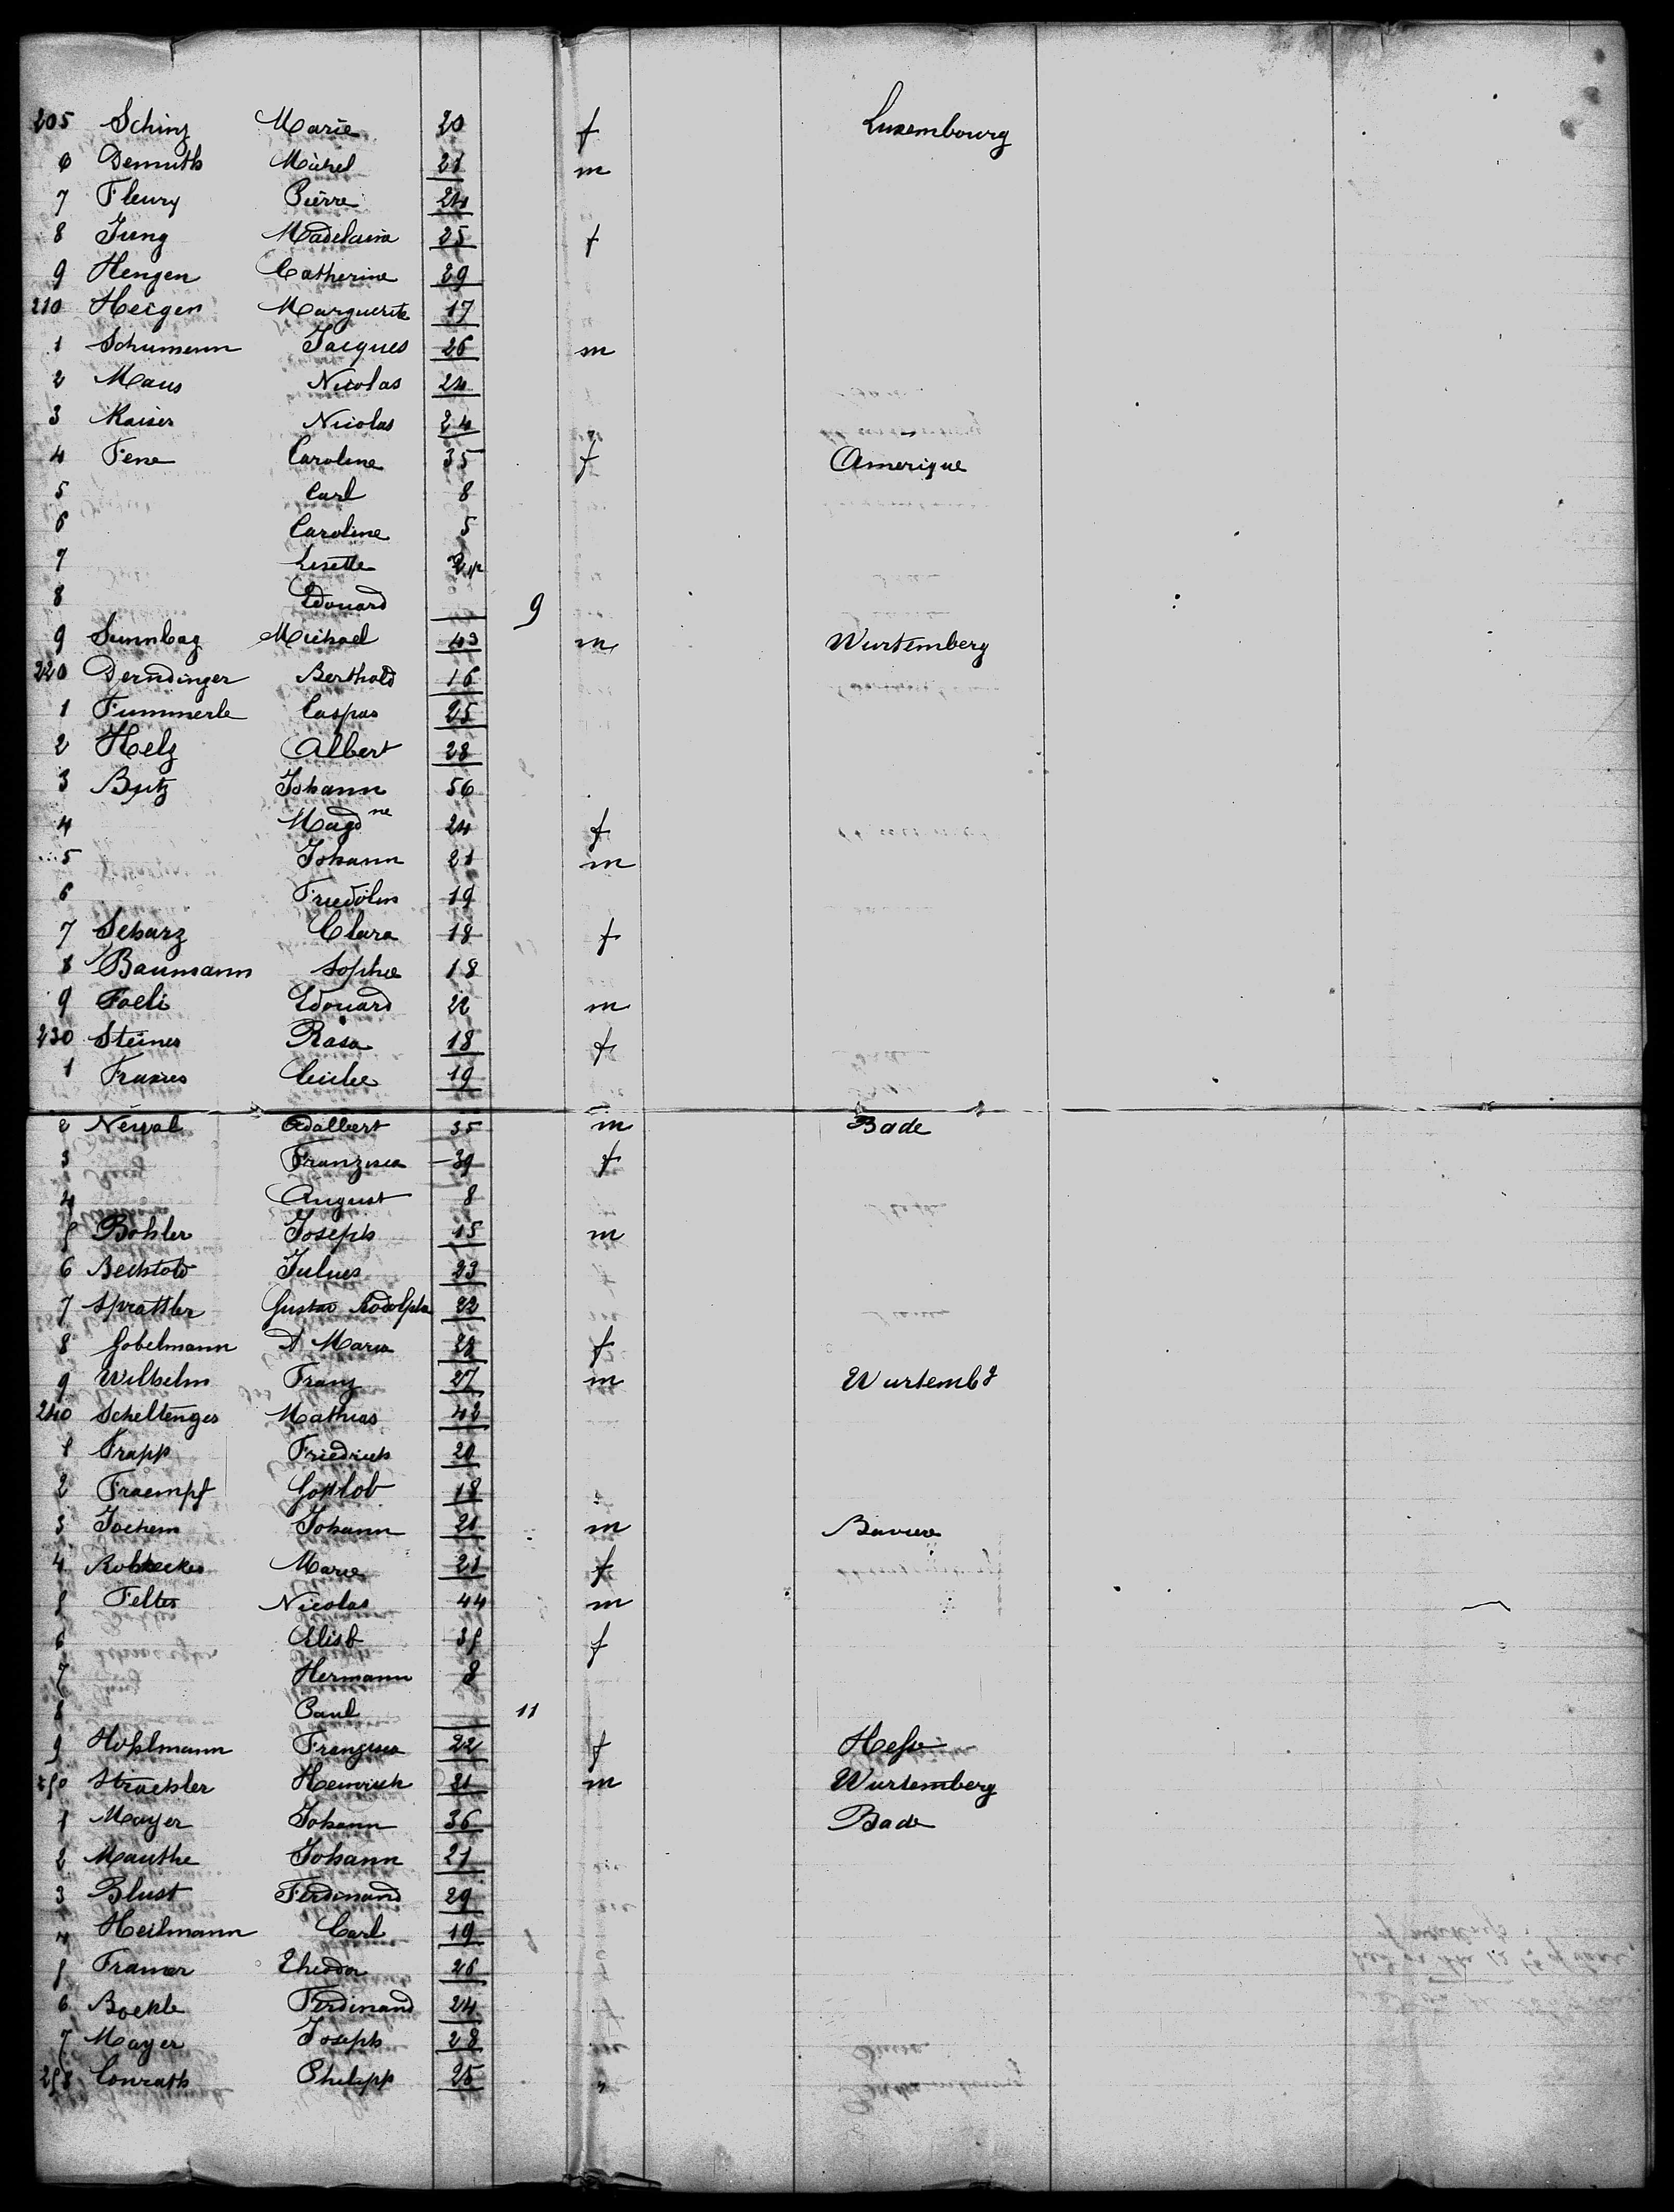 205 Schinz Marie 20 f Luxembourg
6 Demuth Michel 21 m
7 Fleury Pierre 24
8 Jung Madelaina 25 f
9 Hengen Catherine 29
210 Heigen Marguerite 17
1 Schumann Jacques 26 m
2 Maus Nicolas 24
3 Kaiser Nicolas 24
4 Fene Caroline 35 f Amerique
5 Carl 8
6 Caroline 5
7 Lisette
8 Edouard 9
9 Sunnbag Michael 43 m Wurtemberg
220 Derndinger Berthold 16
1 Fummerle Caspar 25
2 Helz Albert 28
3 Butz Johann 56
4 Magdne 24 f
5 Johann 21 m
6 Friedolin 19
7 Scharz Clara 18 f
8 Baumann Sophie 18
9 Foeli Edouard 22 m
230 Steiner Rosa 18 f
1 Cecilie 19
2 Adalbert 35 m Bade
3 Franzisca 39 f
4 August 8
5 Bohler Joseph 15 m
6 Bechtold Julius 23
7 Sprattler Gustav Rodolphe 22
8 Gobelmann A Maria 22 f
9 Wilhelm Franz 27 m Wurtembg
240 Scheltenger Mathias 42
1 Trapp Friedrich 20
2 Traempf Gottlob 18
3 Jochem Johann 21 m Baviere
4 Marie 21 f
5 Felter Nicolas 44 m
6 Elisb 35 f
7 Hermann 8
8 Paul 11
9 Hoslmann Franzisca 22 f Hesse
250 Straehler Heinrich 21 m Wurtemberg
1 Mayer Johann 36 Bade
2 Mauthe Johann 21
3 Blust Ferdinand 29
4 Heilmann Carl 19
5 Framer Theodor 26
6 Boekle Ferdinand 24
7 Mayer Joseph 28
258 Conrath Philipp 25 "